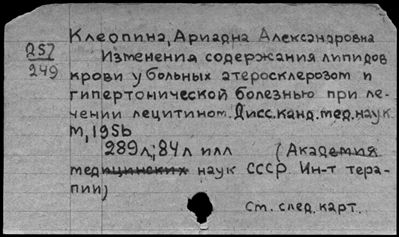 Клеопина, Ариадна Александровна
Д57
249
Изменения содержания липидов
крови у больных атеросклерозом и
гипертонической болезнью при ле-
чении лецитином. Дисс. канд. мед. наук.
М, 1956
289 л; 84 л илл (Академия
медицинских наук СССР Ин-т тера-
пии)
См. след. карт.